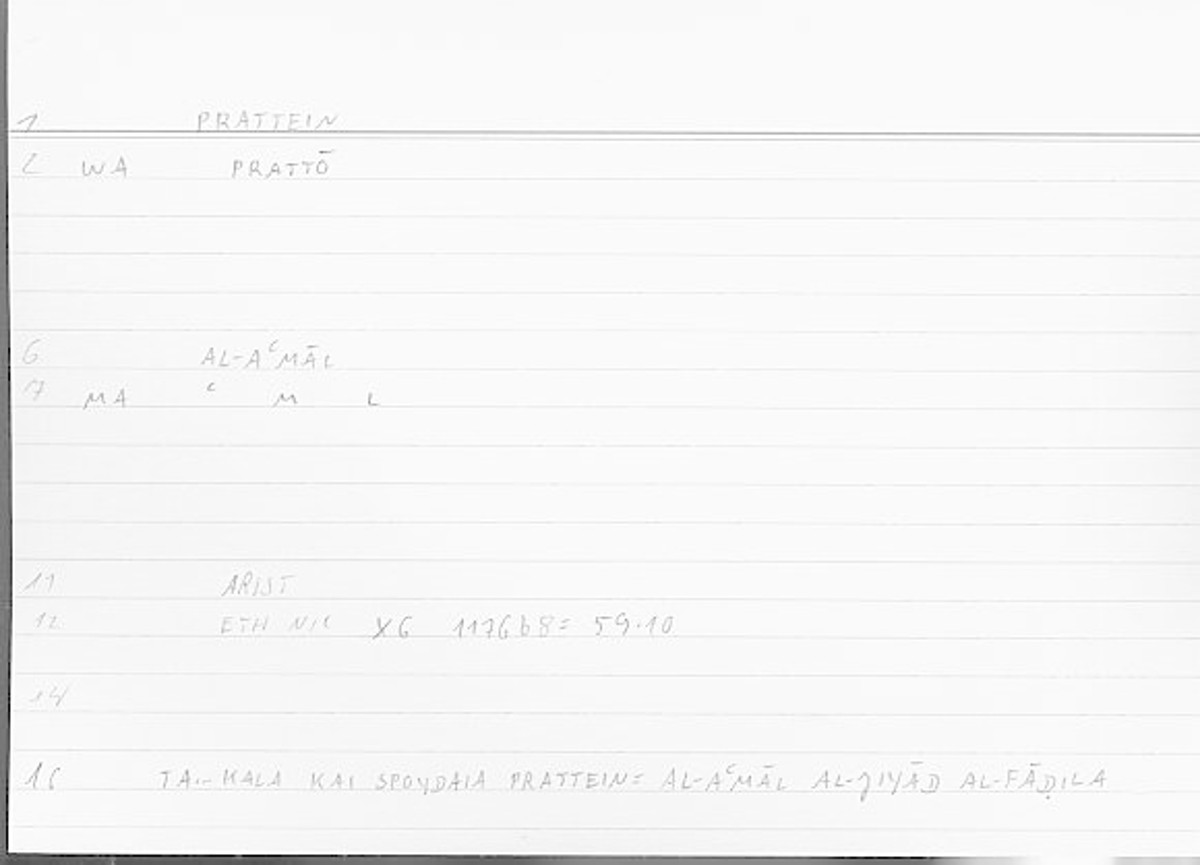 1 PRATTEIN
2 WA PRATTŌ
6 AL-AʿMĀL
7 MA ʿ M L
11 ARIST
12 ETH NIC X6 1176b8= 59.10
14
16 TA.- KALA KAI SPOYDAIA PRATTEIN= AL-AʿMĀL AL-JIYĀD AL-FĀḌILA